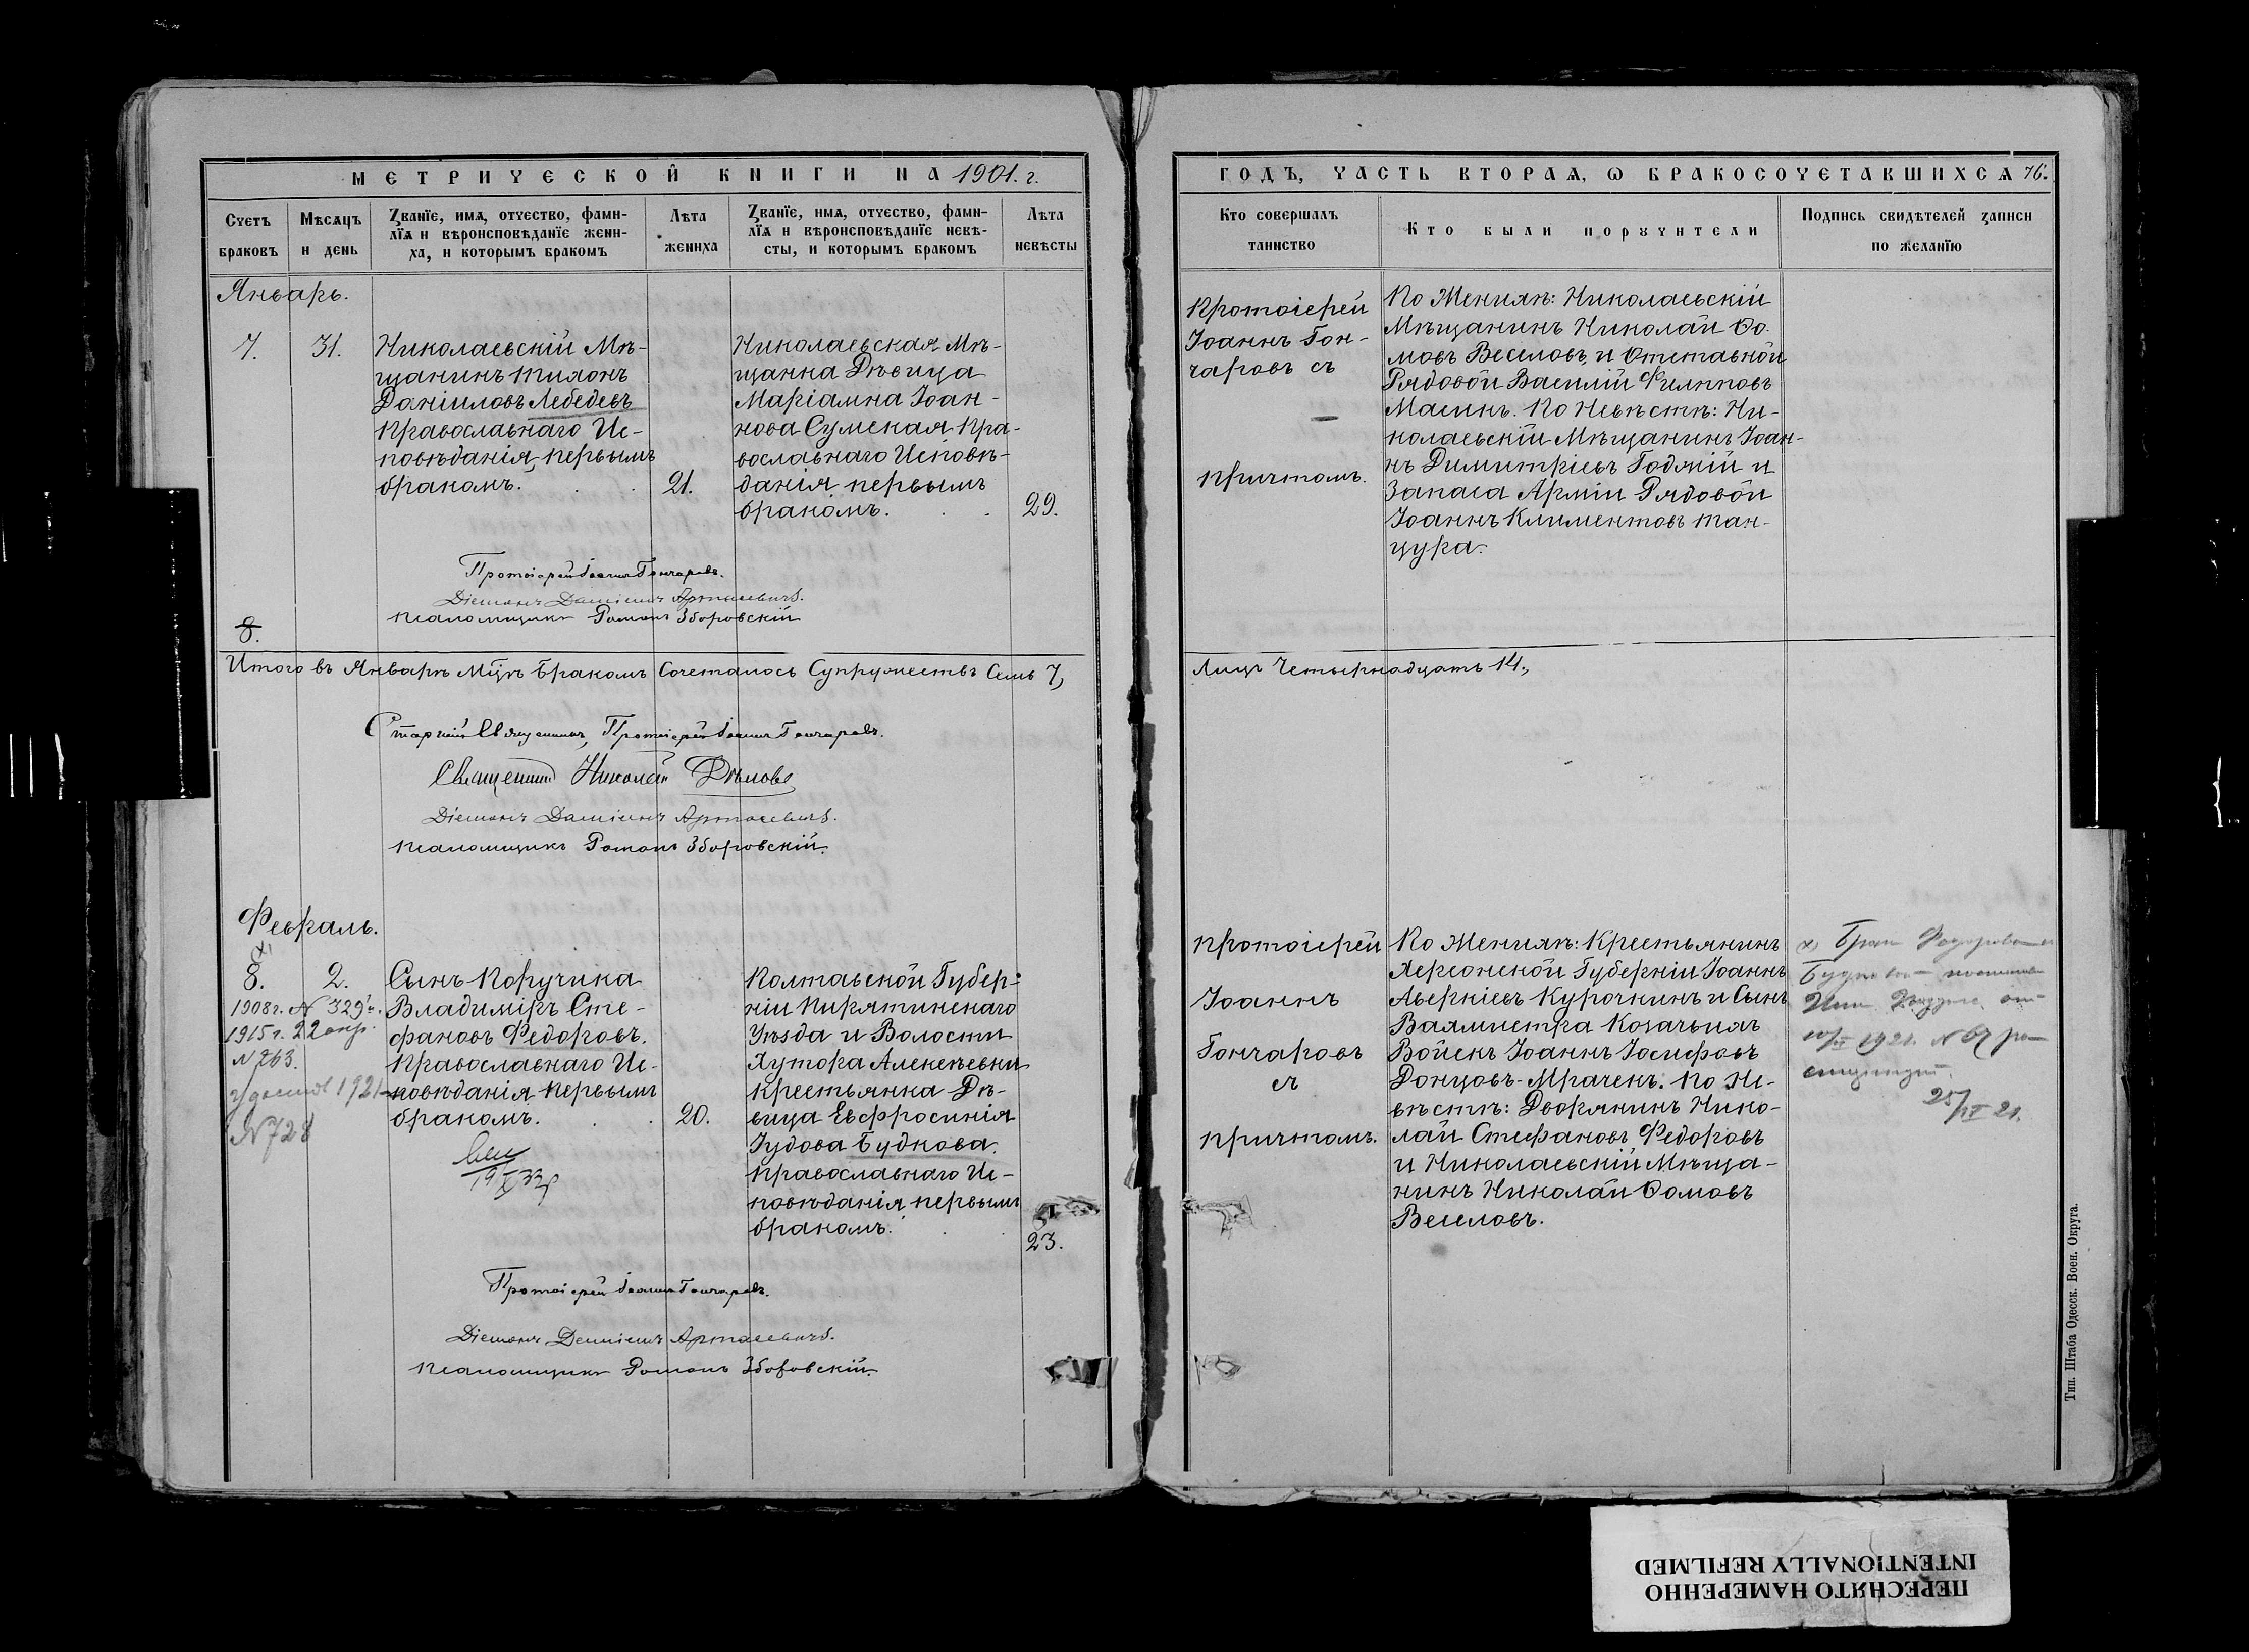 МЕТРИЧЕСКОЙ КНИГИ НА 1901. г.
Счетъ браковъ
Мѣсяцъ и день
Званїе, имя, отчество, фамилїя и вѣроисповѣданїе жениха, и которымъ бракомъ
Лѣта жениха
Званїе, имя, отчество, фамилїя и вѣроисповѣданїе невѣсты, и которымъ бракомъ
Лѣта невѣсты
Январь.
7.
31.
Николаевскій Мѣ-
щанинъ Тихонъ
Даніиловъ Лебедевъ
Православнаго Ис-
повѣданія, первымъ
бракомъ.
21.
Николаевская Мѣ-
щанка Дѣвица
Маріамна Іоан-
нова Сумская Пра-
вославнаго Исповѣ-
данія первымъ
бракомъ.
29.
Протоіерей Іоаннъ Гончаровъ.
Діаконъ Даміанъ Артасевичъ.
Псаломщикъ Романъ Зборовскій
8.
Итого въ Январѣ М̃цѣ Бракомъ Сочеталось Супружествъ Семь 7,
Старшій Священникъ, Протоіерей Іоаннъ Гончаровъ.
Священникъ Николай
Діаконъ Даміанъ Артасевичъ.
Псаломщикъ Романъ Зборовскій.
Февраль.
х)
8.
2.
1908 г. N 329
1915 г. 22 апр.
N 763.
1921
N 728
Сынъ Поручика
Владиміръ Сте-
фановъ Федоровъ.
Православнаго Ис-
повѣданія первымъ
бракомъ.
20.
Полтавской Губер-
ніи Пирятинскаго
Уѣзда и Волости
Хутора Алексѣевки
Крестьянка Дѣ-
вица Евфросинія
Іудова Будкова.
Православнаго Ис-
повѣданія первымъ
бракомъ.
23.
Протоіерей Іоаннъ Гончаровъ.
Діаконъ Даміанъ Артасевичъ.
Псаломщикъ Романъ Зборовскій.
ГОДЪ, ЧАСТЬ ВТОРАЯ, Ѡ БРАКОСОЧЕТАВШИХСЯ 76.
Кто совершалъ таинство
Кто были поручители
Подпись свидѣтелей записи по желанїю
Протоіерей
Іоаннъ Гон-
чаровъ съ
причтомъ.
По Женихѣ: Николаевскій
Мѣщанинъ Николай Ѳо-
мовъ Веселовъ, и Отставной
Рядовой Василій Филипповъ
Масинъ. По Невѣстѣ: Ни-
колаевскій Мѣщанинъ Іоан-
нъ Димитріевъ Годякій и
Запаса Арміи Рядовой
Іоаннъ Климентовъ Тан-
цура.
Лицъ Четырнадцать 14.,
Протоіерей
Іоаннъ
Гончаровъ
съ
причтомъ.
По Женихѣ: Крестьянинъ
Херсонской Губерніи Іоаннъ
Аверкіевъ Курочкинъ и Сынъ
Вахмистра Козачьихъ
Войскъ Іоаннъ Іосифовъ
Донцовъ-Мрачекъ. По Не-
вѣстѣ: Дворянинъ Нико-
лай Стефановъ Федоровъ
и Николаевскій Мѣща-
нинъ Николай Ѳомовъ
Веселовъ.
х) Брак
1921. N
25/IV 21.
Тип. Штаба Одесск. Воен. Округа.
ПЕРЕСНЯТО НАМЕРЕННО
INTENTIONALLY REFILMED